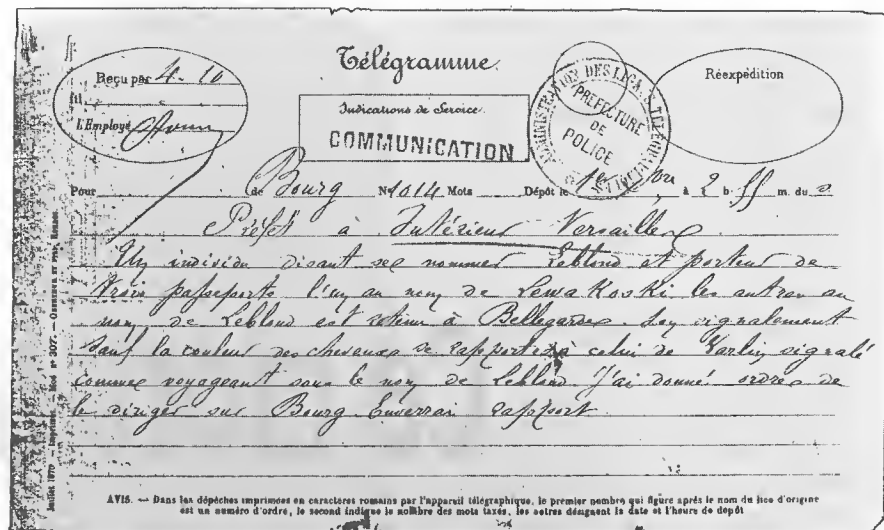 Télégramme.
Reçu par 4-10
fil
L'Employé
Indications de Service.
COMMUNICATION
ADMINISTRATION DES LIGNES TÉLÉGRAPHIQUES
PRÉFECTURE
DE
POLICE
Réexpédition
Pour de Bourg No 1014 Mots Dépôt le à 2 h. 55 m. du s
Préfet à Intérieur Versailles
Un individu disant se nommer Leblond et porteur de
trois passeports l'un au nom de Lewakoski les autres au
nom de Leblond est retenu à Bellegarde. Son signalement
sauf la couleur des cheveux se rapporte à celui de Varlin signalé
comme voyageant sous le nom de Leblond J'ai donné ordre de
le diriger sur Bourg Enverrai rapport
Juillet 1870 — Imprimés. — Mod nº 307. —
AVIS. — Dans les dépêches imprimées en caractères romains par l'appareil télégraphique, le premier nombre qui figure après le nom du lieu d'origine
est un numéro d'ordre, le second indique le nombre des mots taxés, les autres désignent la date et l'heure de dépôt